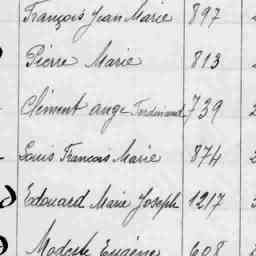 François Jean Marie 897
Pierre Marie 813
Clément ange Ferdinand 739
Louis Francois Marie 874
Edouard Marie Joseph 1217
Modeste Eugène 608